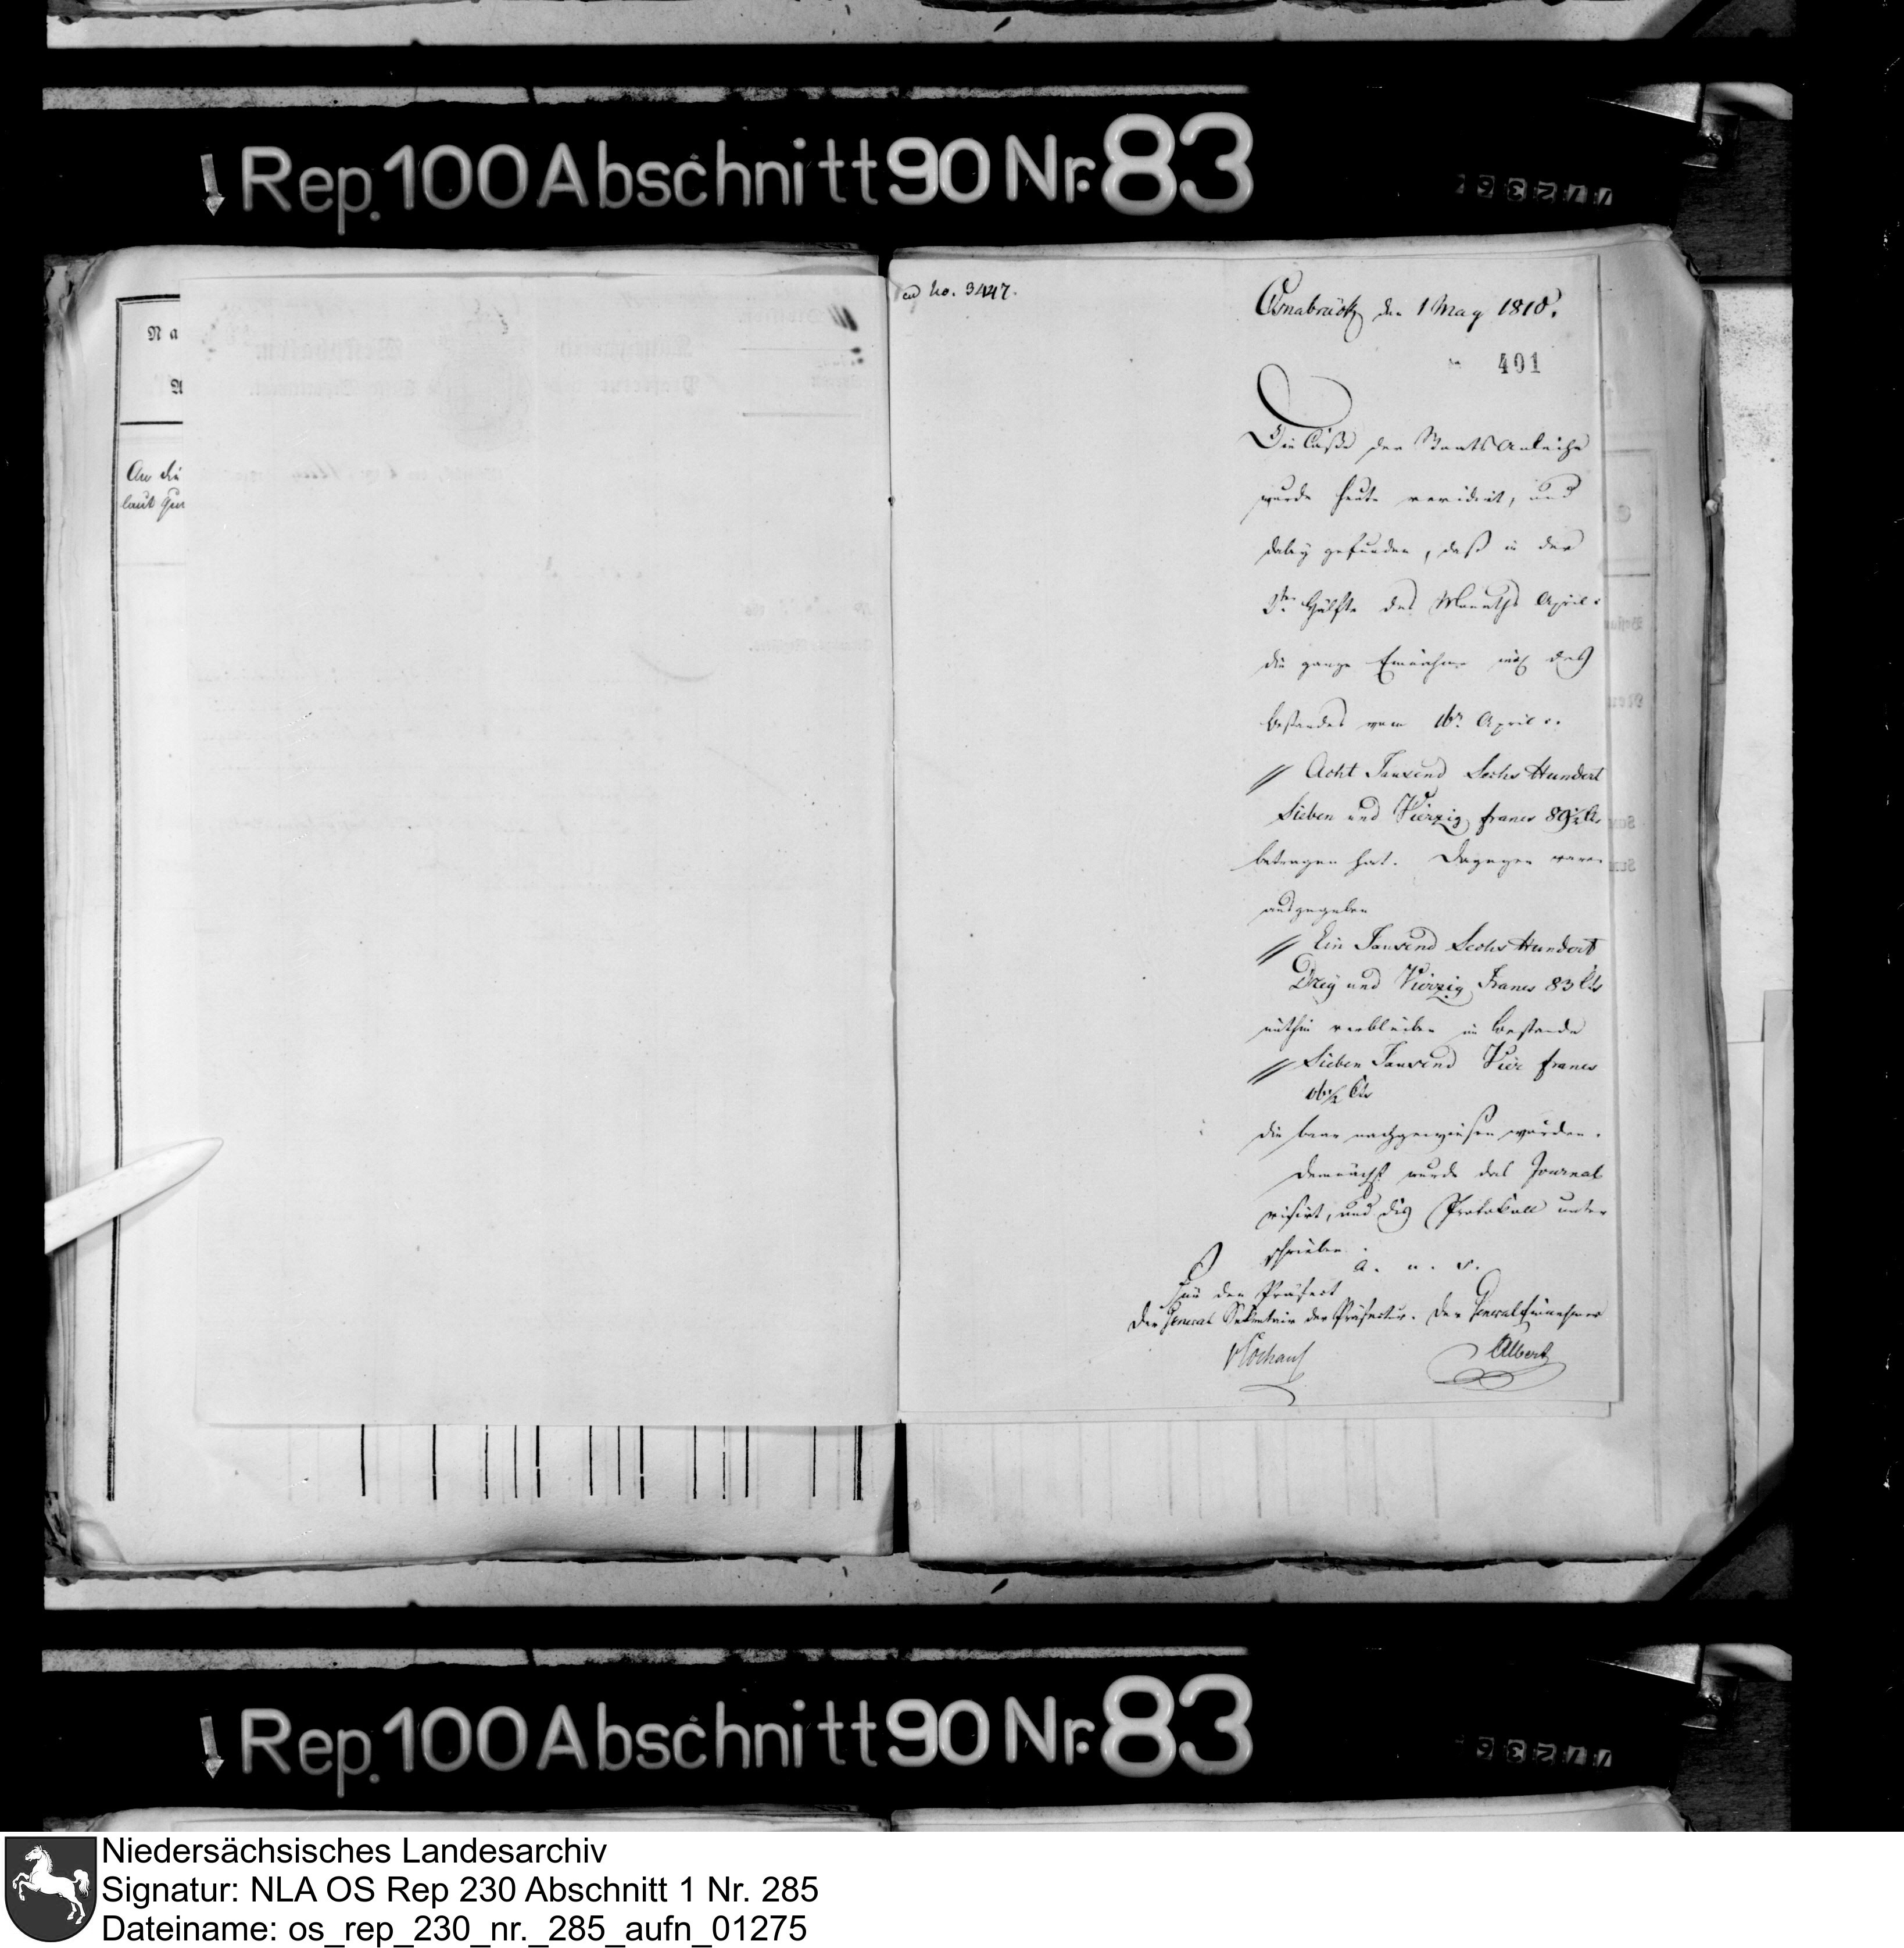 Rep. 100 Abschnitt 90 Nr. 83
Na
A
An die
laut
ad No. 3447.
Osnabrück den 1 May 1810.
401
Die Casse der Staats Anleihe
wurde heute revidirt, und
dabey gefunden, daß in der
2ten Hälfte des Monaths April c.
die ganze Einnahme incl des
Bestandes vom 16n April c.
// Acht Tausend Sechs Hundert
Sieben und Vierzig francs 89½ Cts
betragen hat. Dagegen waren
ausgegeben
// Ein Tausend Sechs Hundert
Drey und Vierzig Francs 83 Cts
mithin verblieben in Bestande
// Sieben Tausend Vier francs
06½ Cts
die baar nachgewiesen wurden.
Demnächst wurde das Journal
visirt, und dies Protokoll unter
schrieben.
a. u. s.
Für den Präfect
Der General Sekretair der Präfectur. Der General Einnehmer
Albert
Rep. 100 Abschnitt 90 Nr. 83
Niedersächsisches Landesarchiv
Signatur: NLA OS Rep 230 Abschnitt 1 Nr. 285
Dateiname: os_rep_230_nr._285_aufn_01275